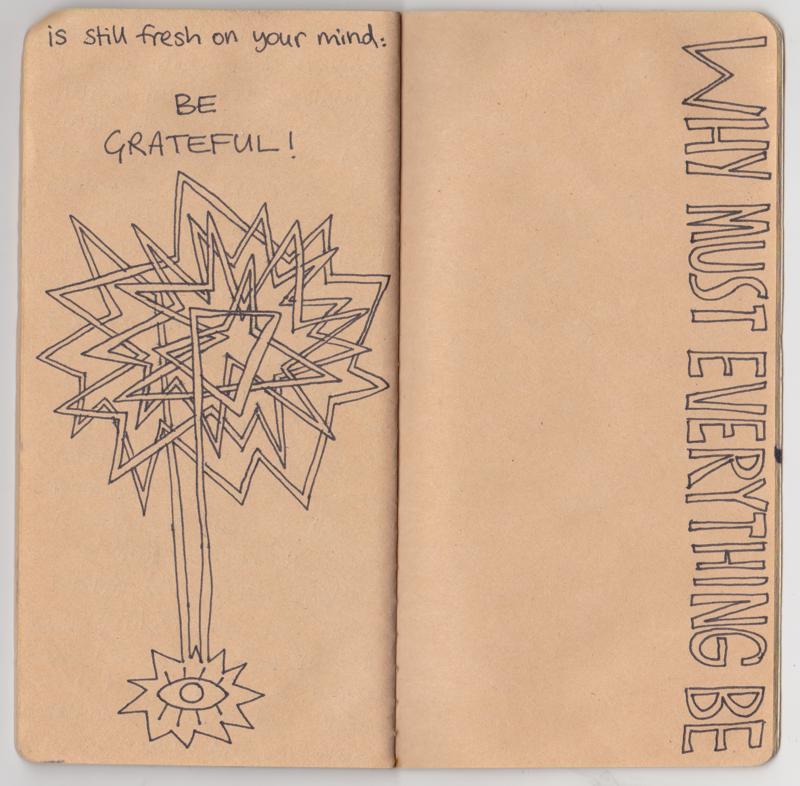 is still fresh on your mind:
BE
GRATEFUL!
WHY MUST EVERYTHING BE